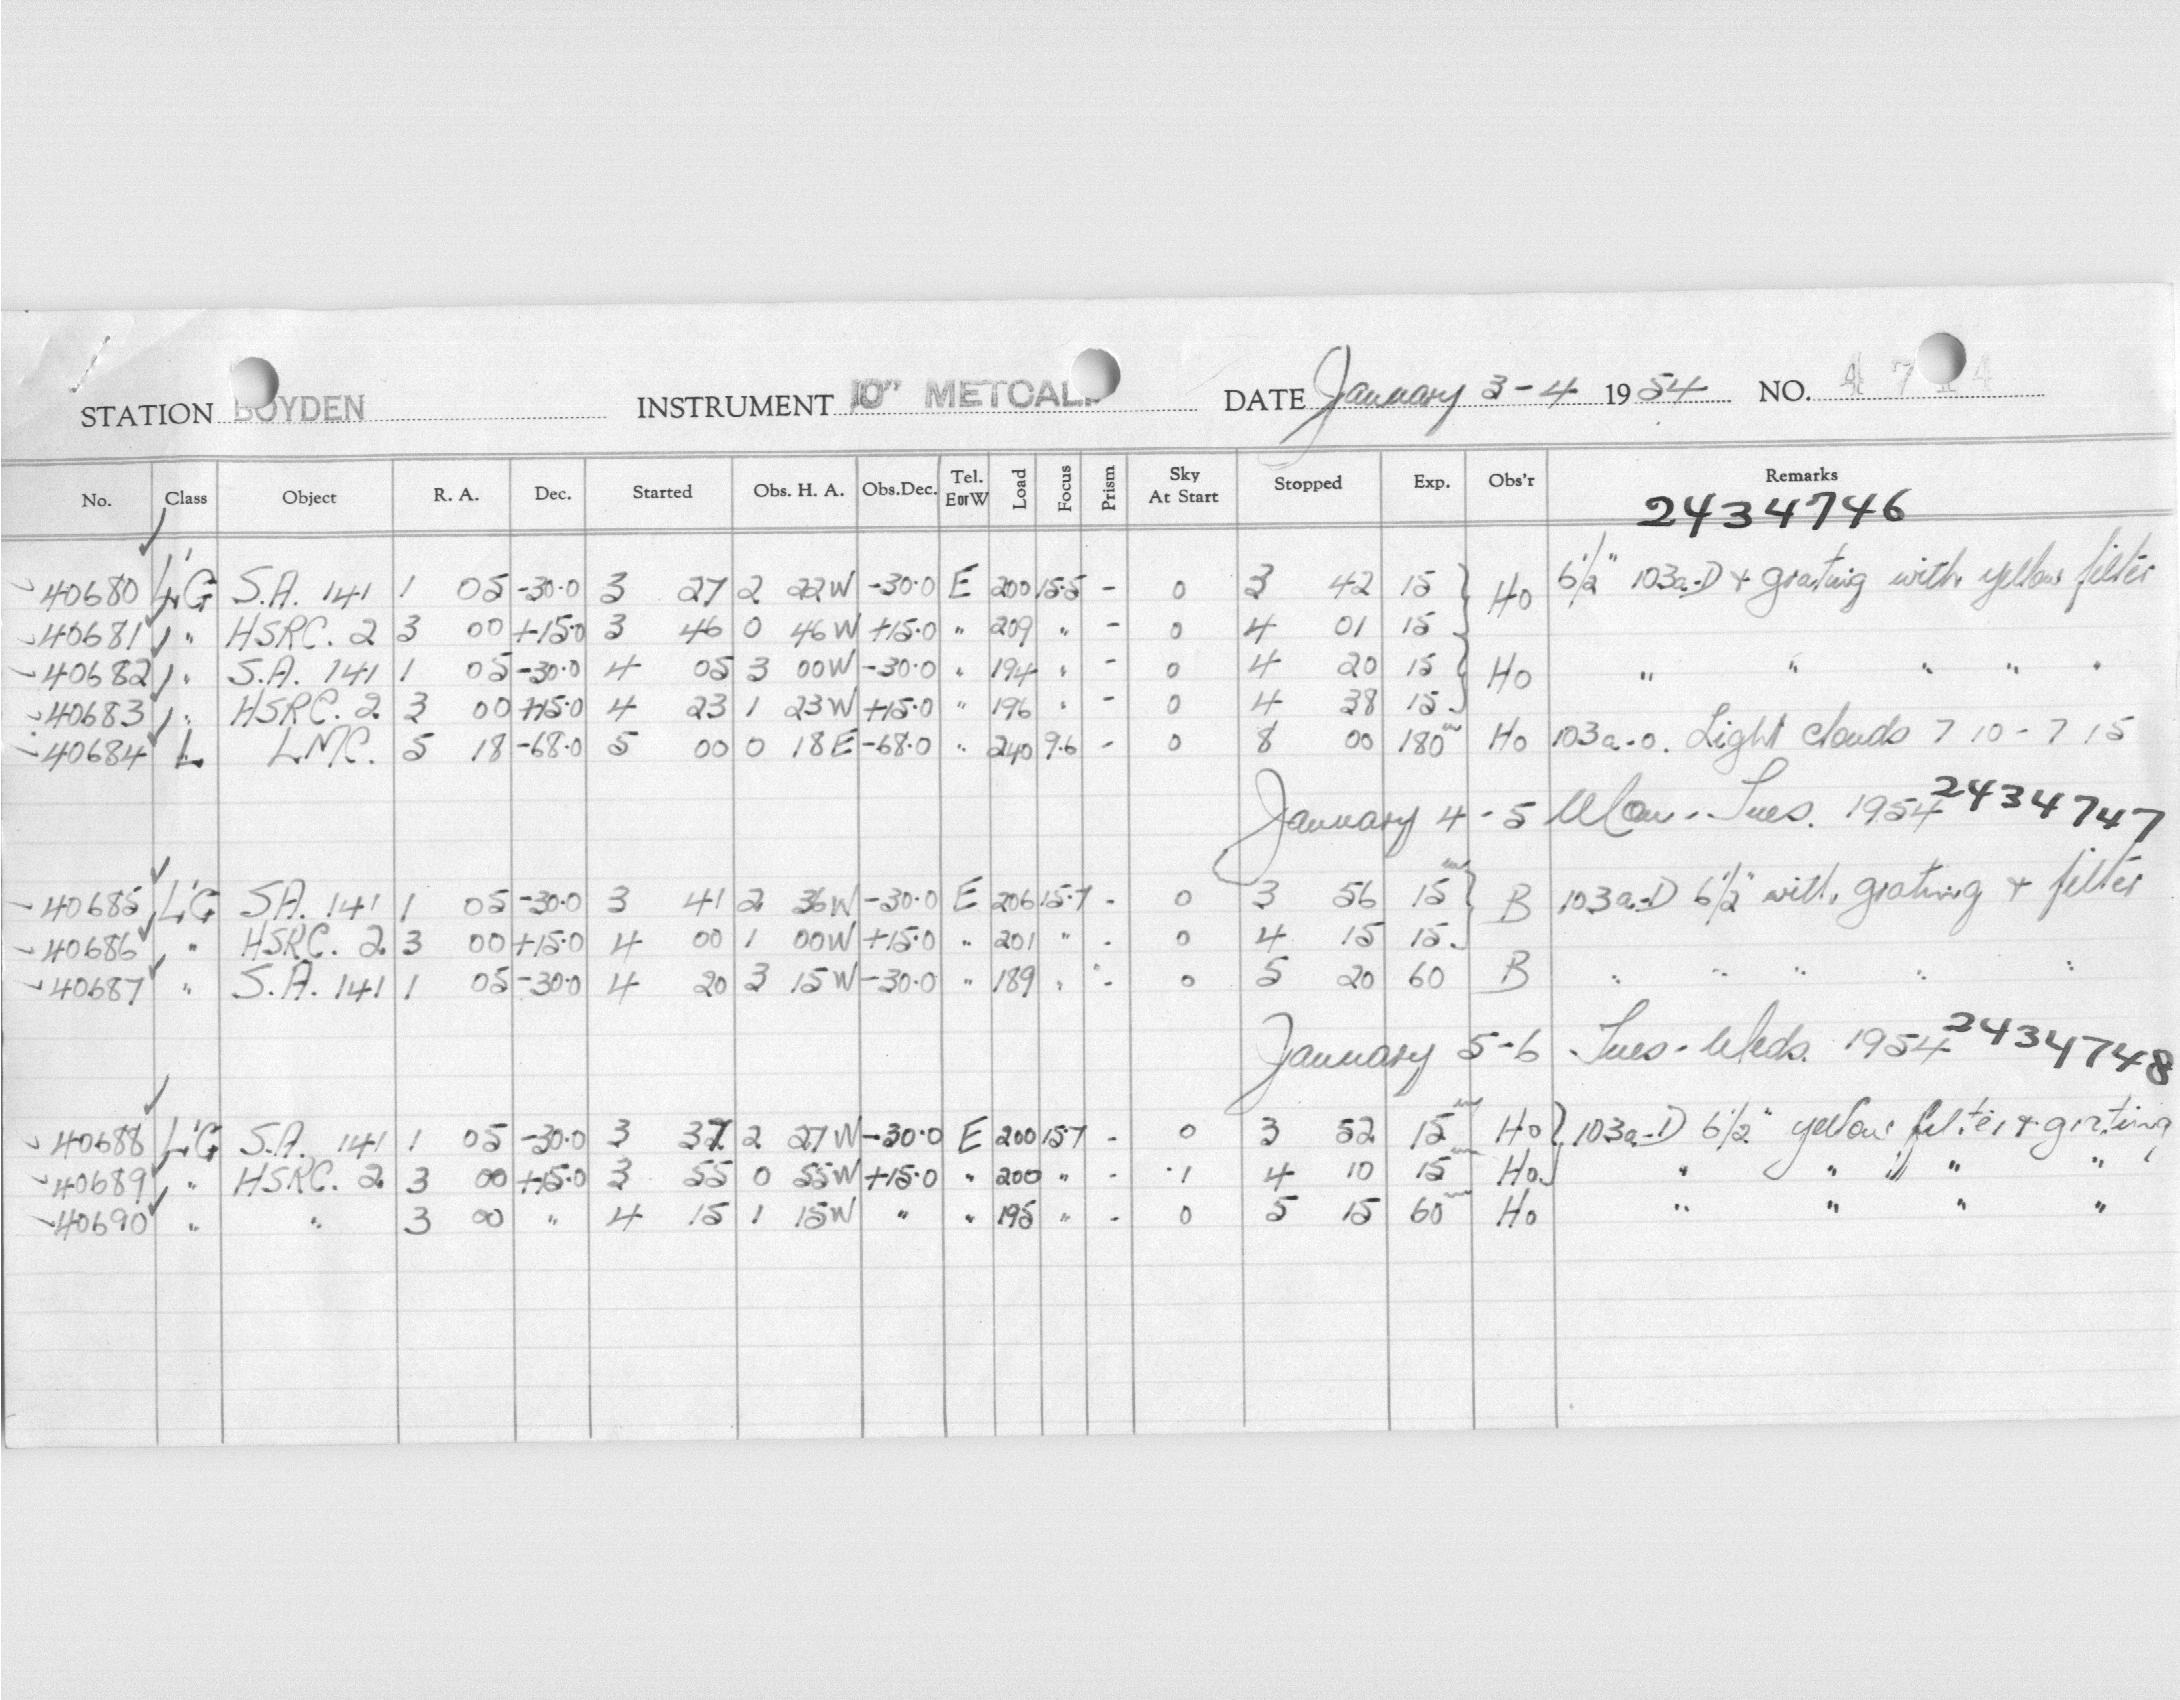 STATION BOYDEN INSTRUMENT 10" METCAL DATE January 3-4 1954 NO. 4 7 4
No. Class Object R. A. Dec. Started Obs. H. A. Obs.Dec. Tel. E or W Load Focus Prism Sky At Start Stopped Exp. Obs'r Remarks
2434746
40680 L'G S.A. 141 1 05 -30.0 3 27 2 22W -30.0 E 200 15.5 - 0 3 42 15 } Ho 6½" 103a-D + grating with yellow filter
40681 " HSRC. 2 3 00 +15.0 3 46 0 46W +15.0 " 209 " - 0 4 01 15
40682 " S.A. 141 1 05 -30.0 4 05 3 00W -30.0 " 194 " - 0 4 20 15 } Ho " " " " "
40683 " HSRC. 2 3 00 +15.0 4 23 1 23W +15.0 " 196 " - 0 4 38 15
40684 L LMC. 5 18 -68.0 5 00 0 18E -68.0 " 240 9.6 - 0 8 00 180m Ho 103a-o. Light clouds 7 10 - 7 15
January 4-5 Mon. - Tues. 1954 2434747
40685 L'G S.A. 141 1 05 -30.0 3 41 2 36W -30.0 E 206 15.7 - 0 3 56 15m } B 103a-D 6½" with grating + filter
40686 " HSRC. 2 3 00 +15.0 4 00 1 00W +15.0 " 201 " - 0 4 15 15
40687 " S.A. 141 1 05 -30.0 4 20 3 15W -30.0 " 189 " - 0 5 20 60 B " " " " "
January 5-6 Tues - Weds. 1954 2434748
40688 L'G S.A. 141 1 05 -30.0 3 37 2 27W -30.0 E 200 15.7 - 0 3 52 15m Ho } 103a-D 6½" yellow filter + grating
40689 " HSRC. 2 3 00 +15.0 3 55 0 55W +15.0 " 200 " - .1 4 10 15m Ho " " " " "
40690 " " 3 00 " 4 15 1 15W " " 195 " - 0 5 15 60m Ho " " " "